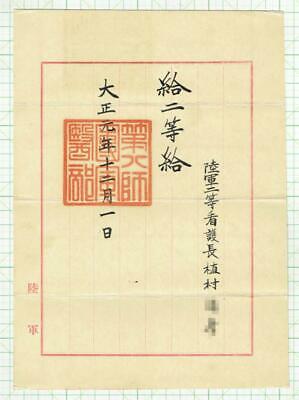 陸軍二等看護長植村
給二等給
大正元年十二月一日
陸軍